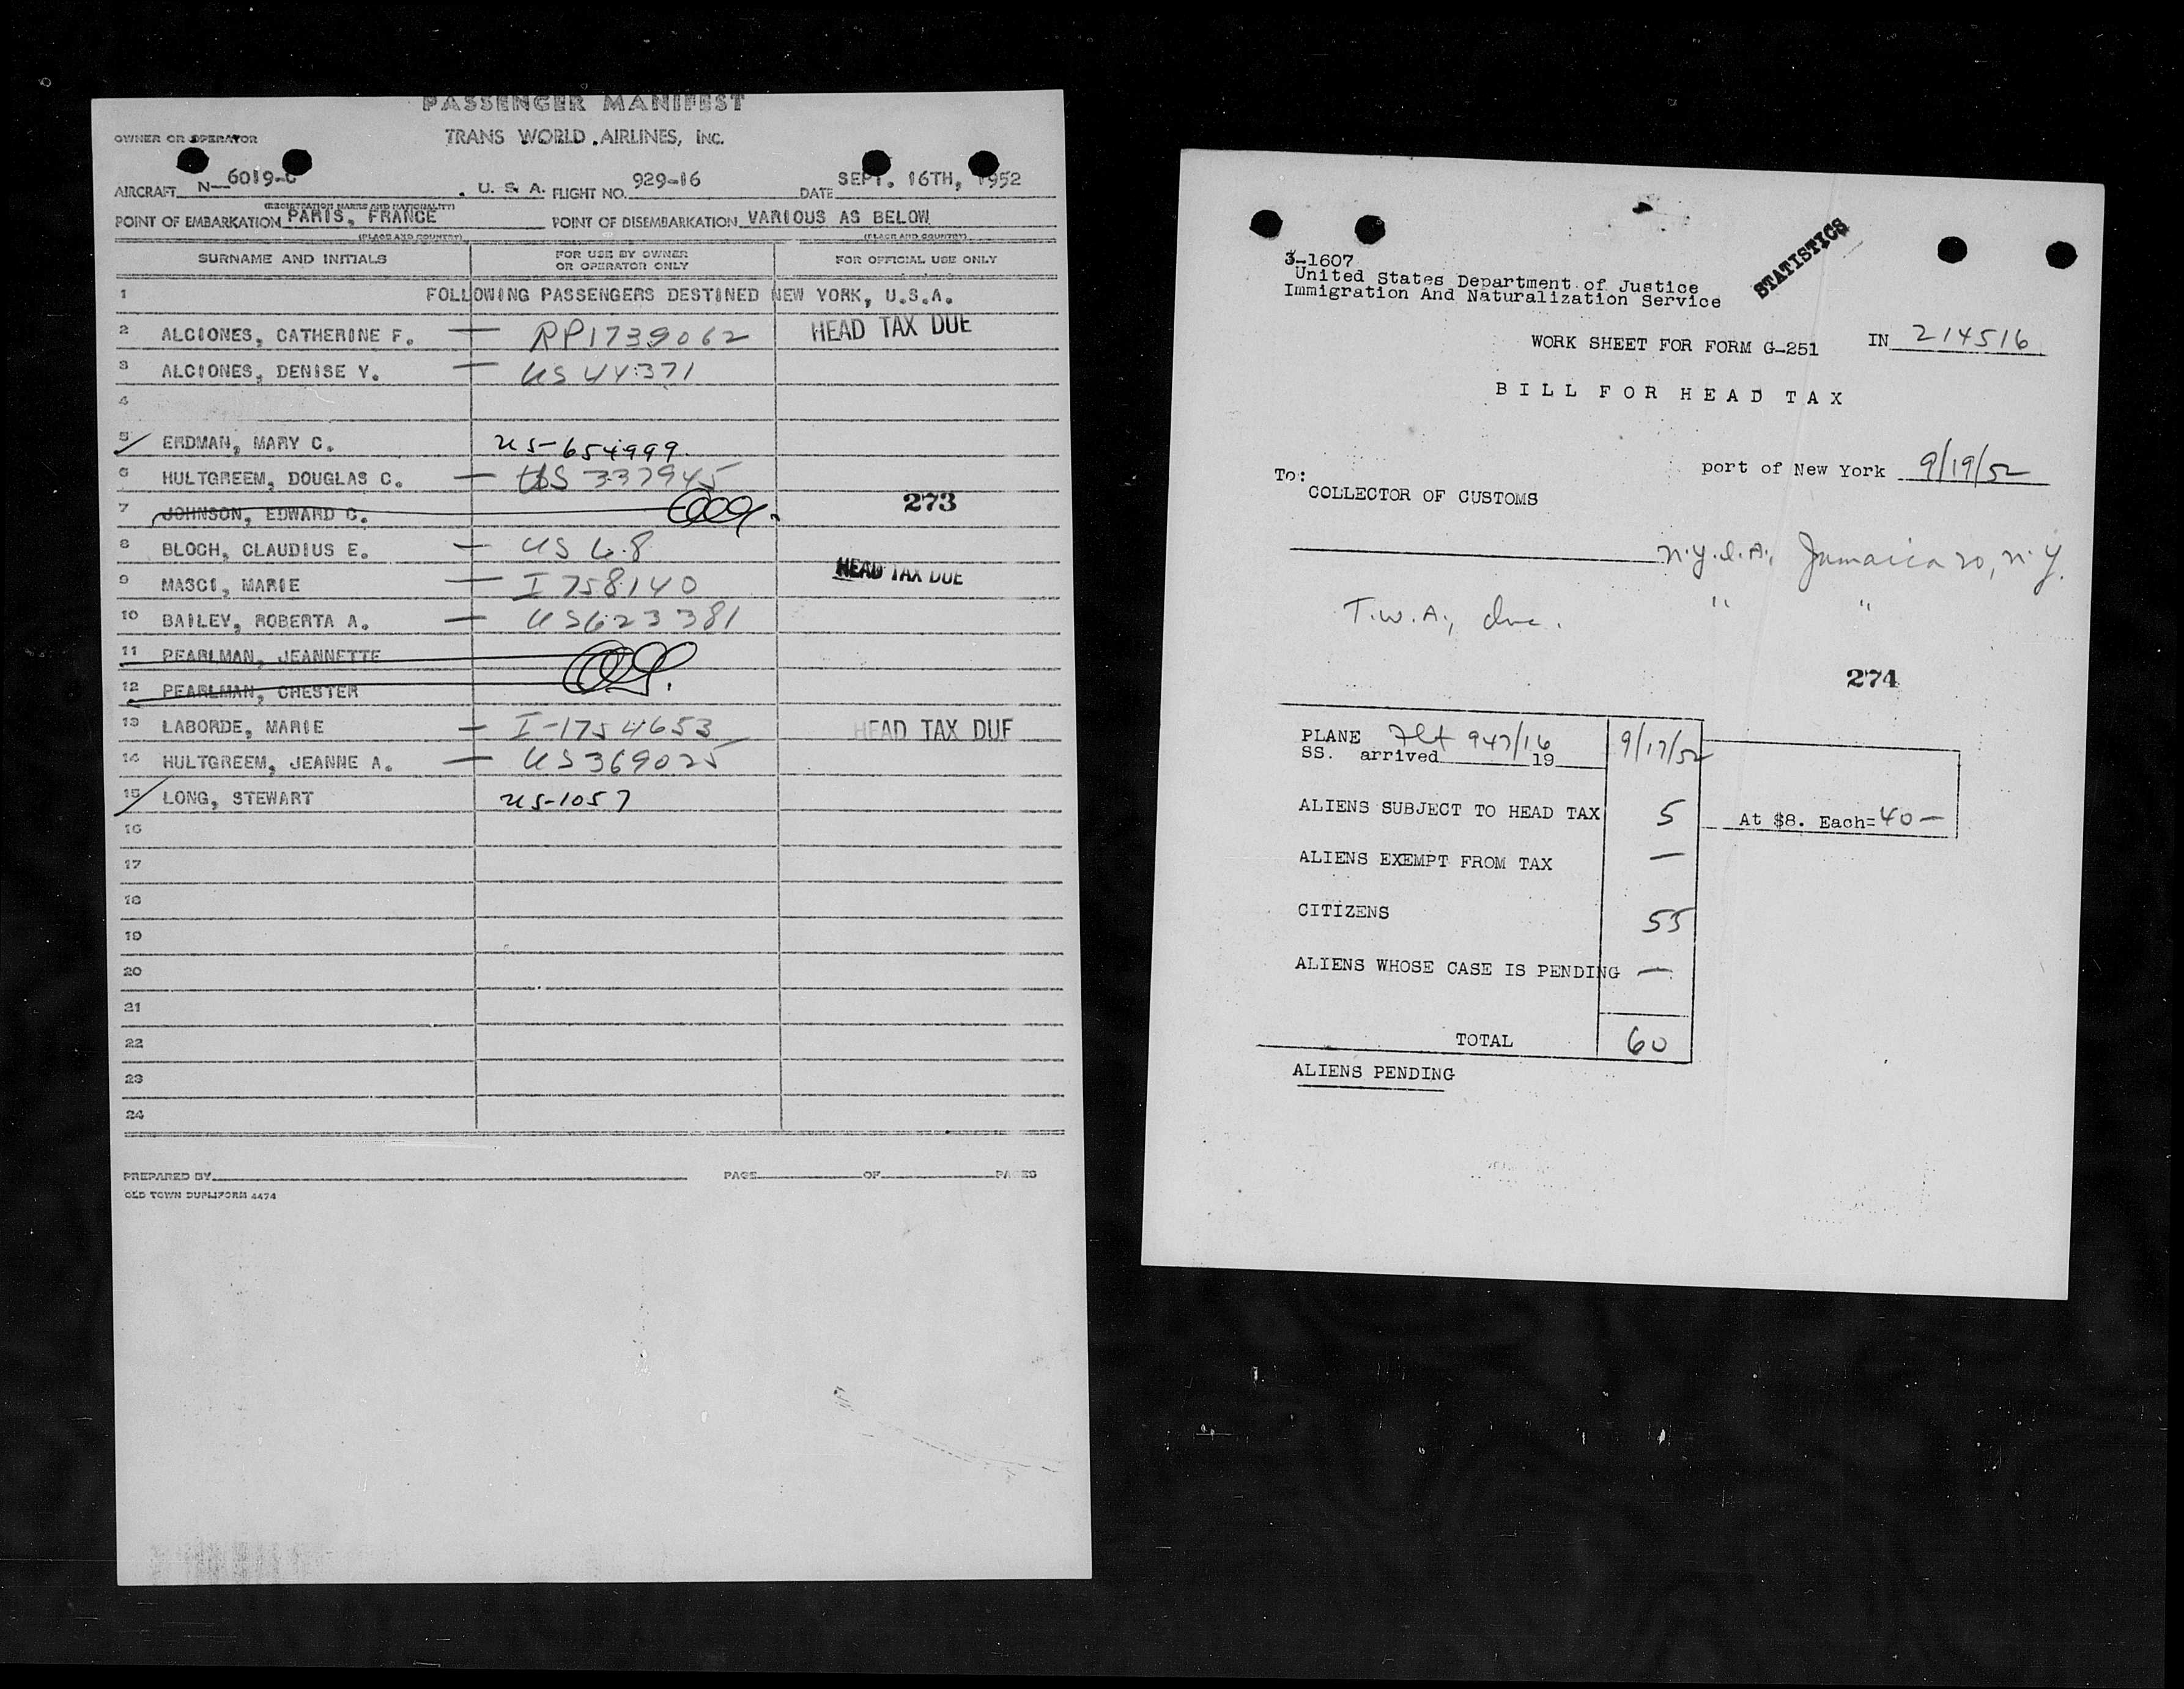 PASSENGER MANIFEST
OWNER OR OPERATOR TRANS WORLD AIRLINES, INC.
AIRCRAFT N-6019-C . U. S. A. FLIGHT NO. 929-16 DATE SEPT. 16TH, 1952
(REGISTRATION MARKS AND NATIONALITY)
POINT OF EMBARKATION PARIS, FRANCE POINT OF DISEMBARKATION VARIOUS AS BELOW
(PLACE AND COUNTRY) (PLACE AND COUNTRY)
SURNAME AND INITIALS FOR USE BY OWNER OR OPERATOR ONLY FOR OFFICIAL USE ONLY
1 FOLLOWING PASSENGERS DESTINED NEW YORK, U.S.A.
2 ALCIONES, CATHERINE F. — RP1739062 HEAD TAX DUE
3 ALCIONES, DENISE Y. — US 44371
4
5 ERDMAN, MARY C. US-654999
6 HULTGREEM, DOUGLAS C. — US 337945
7 JOHNSON, EDWARD C. 273
8 BLOCH, CLAUDIUS E. — US 68
9 MASCI, MARIE — I 758140 HEAD TAX DUE
10 BAILEY, ROBERTA A. — US623381
11 PEARLMAN, JEANNETTE
12 PEARLMAN, CHESTER
13 LABORDE, MARIE — I-1754653 HEAD TAX DUE
14 HULTGREEM, JEANNE A. — US369025
15 LONG, STEWART US-1057
16
17
18
19
20
21
22
23
24
PREPARED BY PAGE OF PAGES
OLD TOWN DUPLIFORM 4474
STATISTICS
3-1607
United States Department of Justice
Immigration And Naturalization Service
WORK SHEET FOR FORM G-251 IN 214516
BILL FOR HEAD TAX
port of New York 9/19/52
To:
COLLECTOR OF CUSTOMS
N.Y.I.A., Jamaica 20, N.Y.
T.W.A., Inc. " "
274
PLANE Flt 947/16 9/17/52
SS. arrived 19
ALIENS SUBJECT TO HEAD TAX 5 At $8. Each= 40 —
ALIENS EXEMPT FROM TAX —
CITIZENS 55
ALIENS WHOSE CASE IS PENDING —
TOTAL 60
ALIENS PENDING